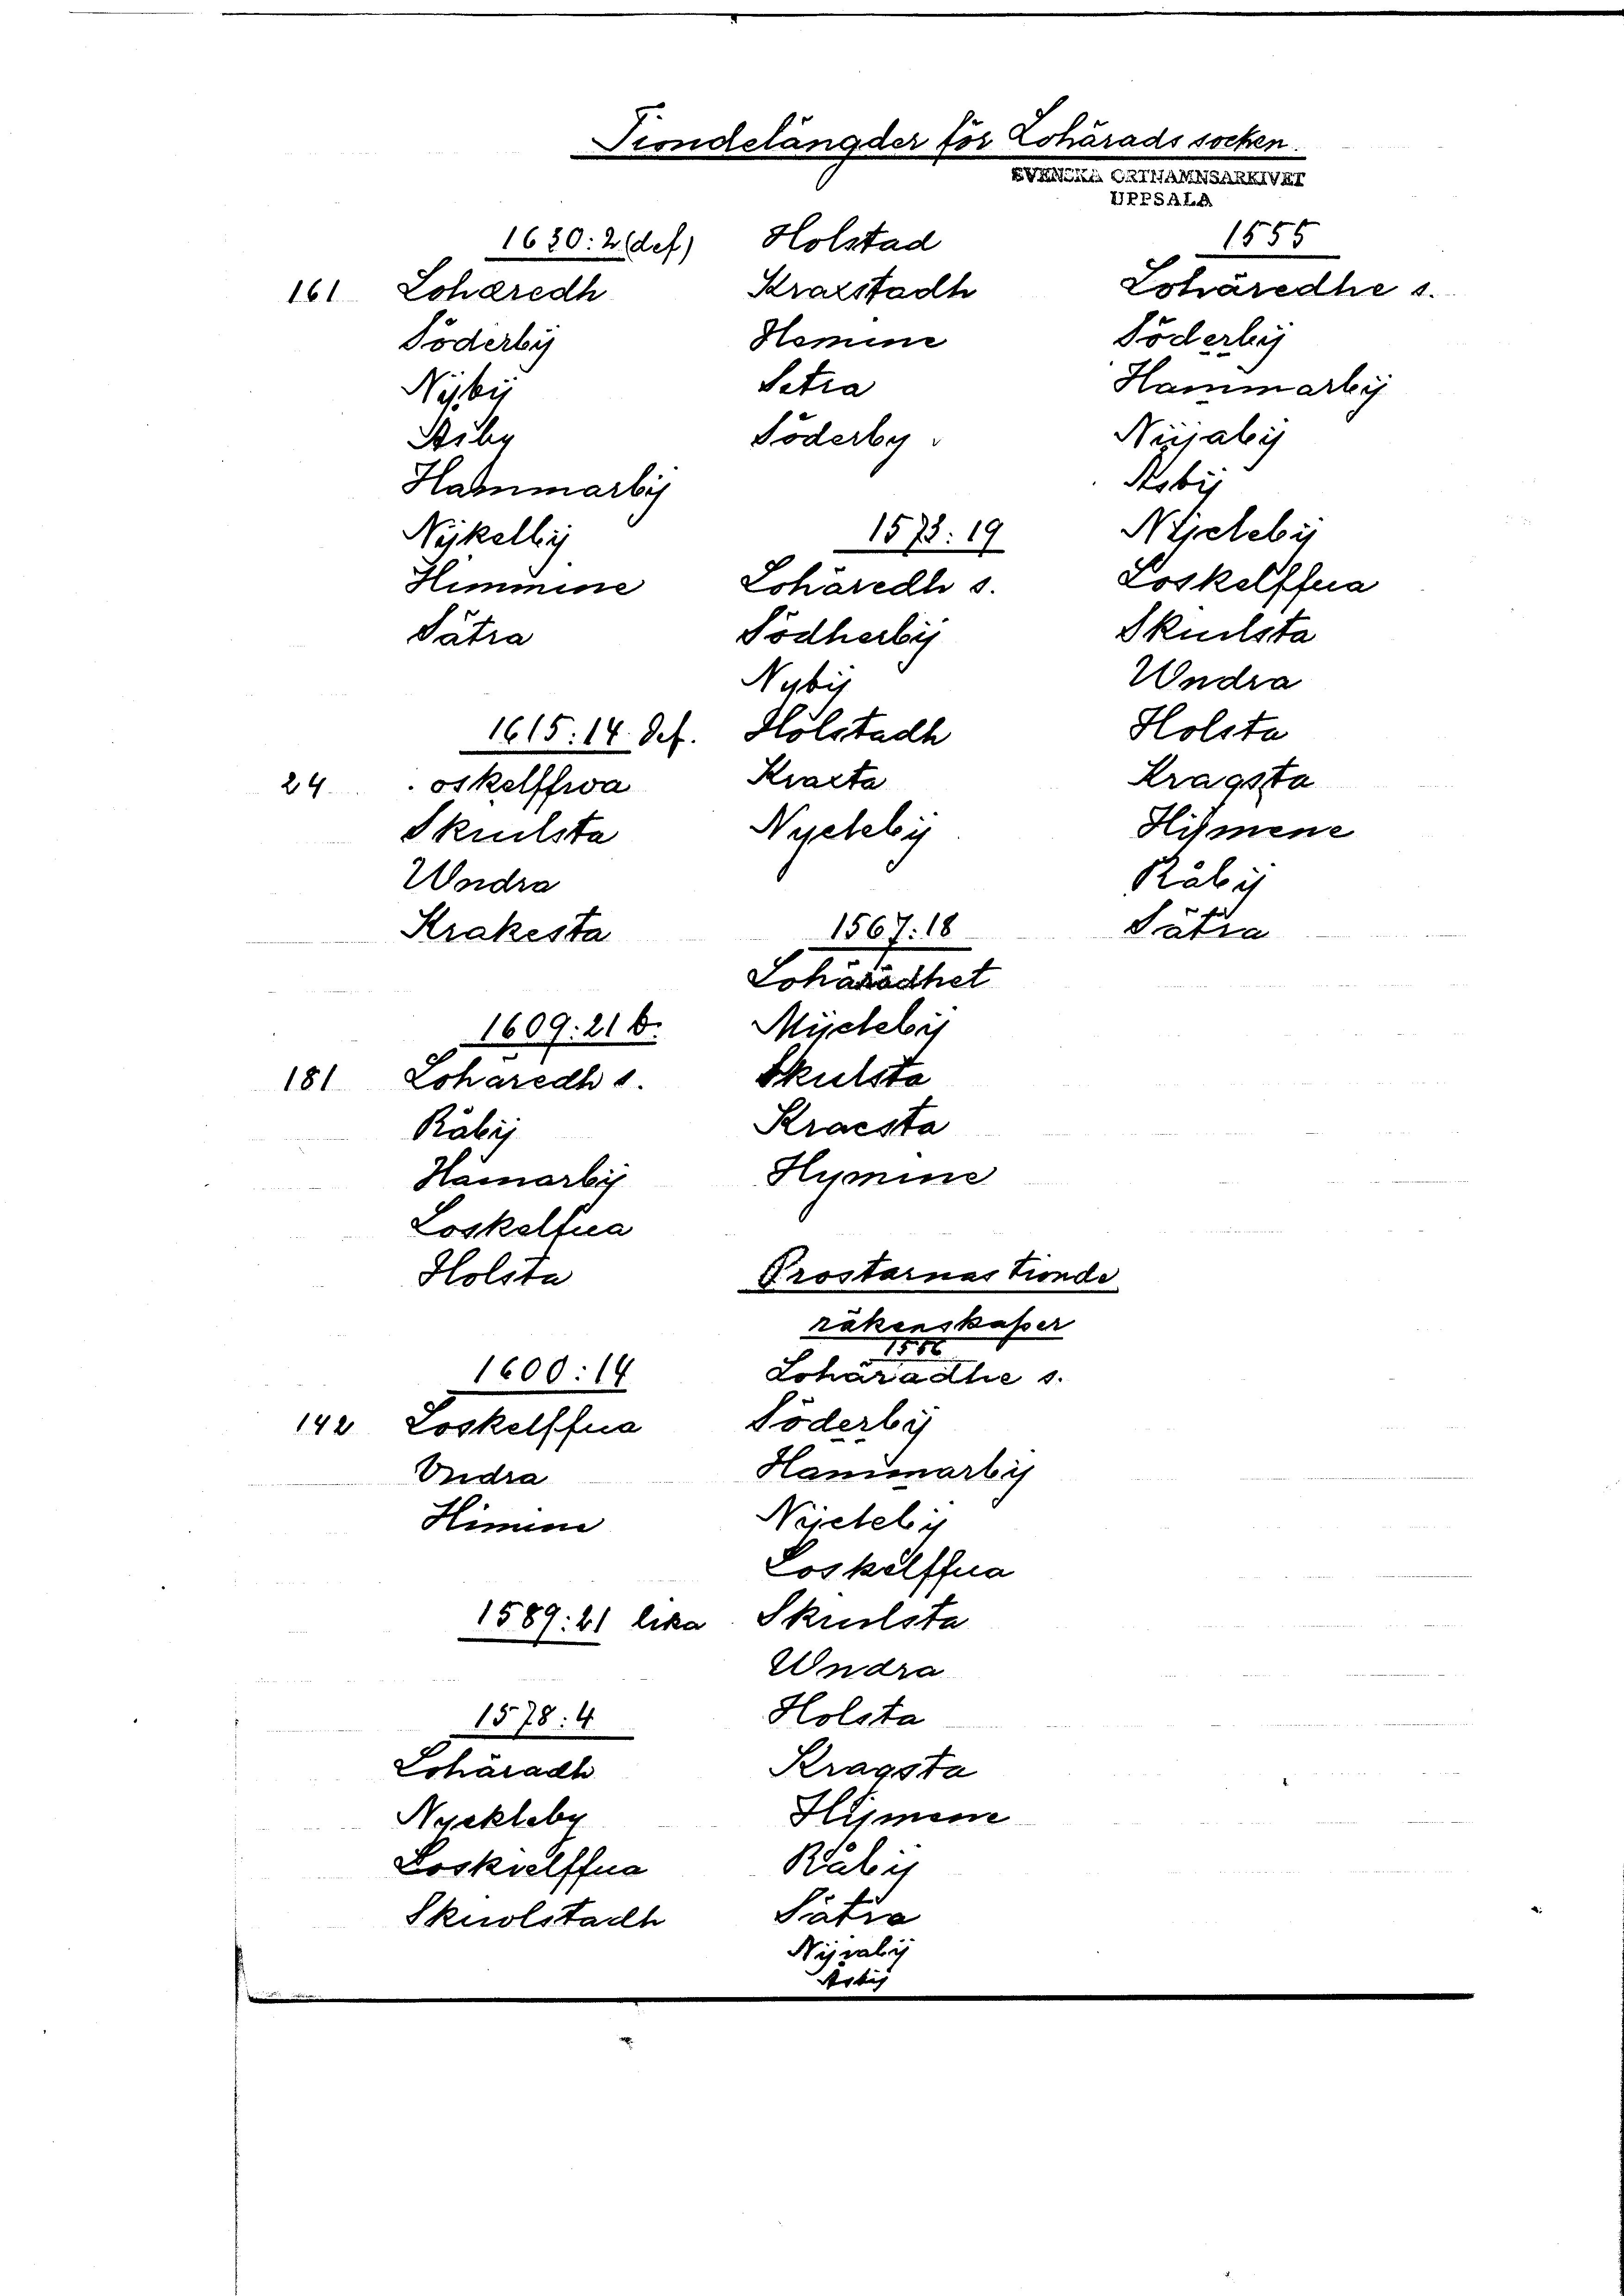 Tiondelängder för Lohärads socken.
SVENSKA ORTNAMNSARKIVET
UPPSALA
1630:2 (def)
161 Lohæredh
Söderbÿ
Nÿbÿ
Asby
Hammarbÿ
Nÿkelbÿ
Himmine
Sätra
1615:14 def.
24 . oskelffwa
Skulsta
Undra
Krakesta
1609:21 b.
181 Loharedh s.
Råbÿ
Hamarbÿ
Loskelfua
Holsta
1600:14
142 Loskelffua
Undra
Himine
1589:21 lika
1578:4
Lohäradh
Nyckleby
Loskielffua
Skuolstadh
Holstad
Kraxstadh
Hemine
Setra
Söderby
1573:19
Lohäredh s.
Södherbÿ
Nybÿ
Holstadh
Kraxta
Nyclebÿ
1567:18
Lohärädhet
Mÿclebÿ
Skulsta
Kracsta
Hymine
Prostarnas tionde
räkenskaper
1556
Lohäradhe s.
Söderbÿ
Hammarbÿ
Nÿclebÿ
Loskälffua
Skulsta
Undra
Holsta
Kragsta
Hÿmene
Råbÿ
Sätra
Nÿiabÿ
Asbÿ
1555
Lohäredhe s.
Söderbÿ
Hammarbÿ
Nÿjabÿ
Asbÿ
Nÿclebÿ
Loskelffua
Skulsta
Undra
Holsta
Kragsta
Hÿmene
Råbÿ
Sätra